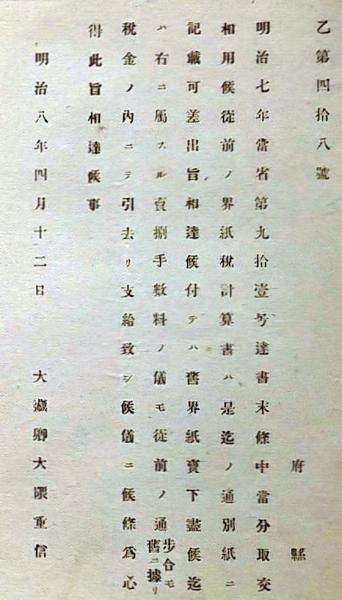 乙第四拾八號
府縣
明治七年當省第九拾壹号達書末條中當分取交
相用候從前ノ界紙稅計算書ハ是迄ノ通別紙ニ
記載可差出旨相達候付テハ舊界紙賣下盡候迄
ハ右ニ屬スル賣捌手數料ノ儀モ從前ノ通步合モ舊ニ據リ
稅金ノ內ニテ引去リ支給致シ候儀ニ候條爲心
得此旨相達候事
明治八年四月十二日 大藏卿大隈重信